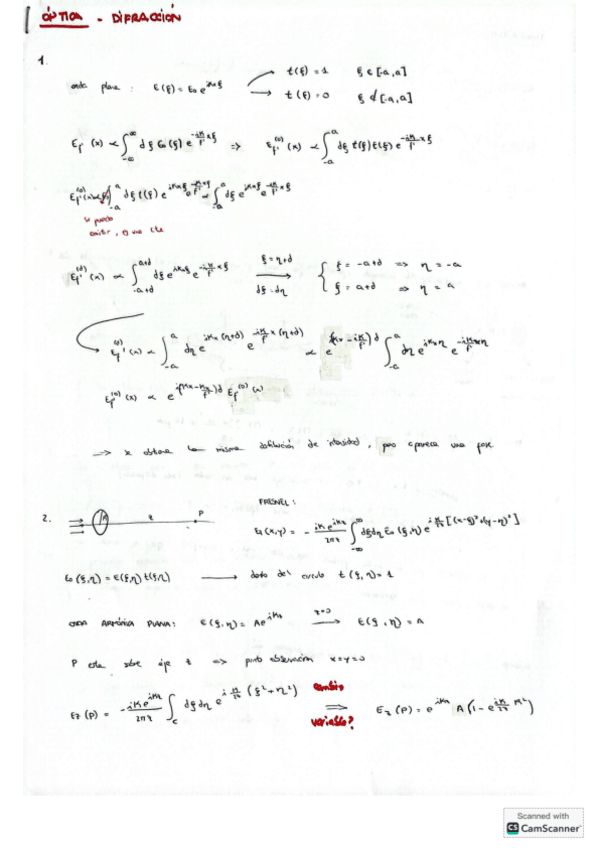 ÓPTICA - DIFRACCIÓN
1.
onda plana : E(ξ) = E₀ e^{ikₓξ} → t(ξ) = 1 ξ ∈ [-a, a]
→ t(ξ) = 0 ξ ∉ [-a, a]
E_f'(x) ∝ ∫_{-∞}^{∞} dξ E₀(ξ) e^{-i k/f' xξ} ⇒ E_f'^{(0)}(x) ∝ ∫_{-a}^{a} dξ t(ξ) t(ξ) e^{-i k/f' xξ}
∫_{-a}^{a} dξ t(ξ) e^{ikₓξ} e^{-i k/f' xξ} ∝ ∫_{-a}^{a} dξ e^{ikₓξ} e^{-i k/f' xξ}
se puede
omitir, es una cte
E_f'^{(d)}(x) ∝ ∫_{-a+d}^{a+d} dξ e^{ikₓξ} e^{-i k/f' xξ} → ξ = η+d dξ = dη { ξ = -a+d ⇒ η = -a
ξ = a+d ⇒ η = a
E_f'(x) ∝ ∫_{-a}^{a} dη e^{ikₓ(η+d)} e^{-i k/f' x(η+d)} ∝ ∫_{-a}^{a} dη e^{ikₓη} e^{-i k/f' xη}
⇒ se obtiene la misma distribución de intensidad, pero aparece una fase
FRESNEL :
2. z P E_z(x,y) = - \frac{ik e^{ikz}}{2πz} ∫_{-∞}^{∞} dξdη E₀(ξ,η) e^{i \frac{k}{2z} [(x-ξ)²+(y-η)²]}
E₀(ξ,η) = E(ξ,η) t(ξ,η) → dentro del círculo t(ξ,η) = 1
ONDA ARMÓNICA PLANA : E(ξ,η) = A e^{ikz} → z=0 E(ξ,η) = A
P está sobre eje z ⇒ punto observación x=y=0
E_z(P) = \frac{-ik e^{ikz}}{2πz} ∫_c dξdη e^{i \frac{k}{2z} (ξ²+η²)} cambio ⇒ variable? E_z(P) = e^{ikz} A (1 - e^{\frac{ik}{2z} R²})
Scanned with
CS CamScanner